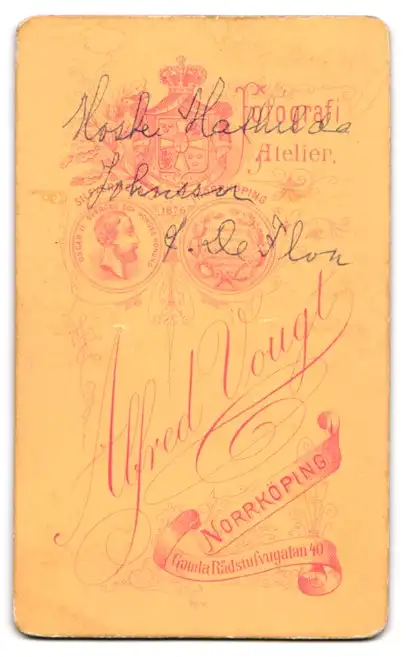 Fotografi
Atelier.
Moster Mathilda
Johnsson
f. De Flon
1876
Alfred Vougt
NORRKÖPING
Gamla Rådstufvugatan 40